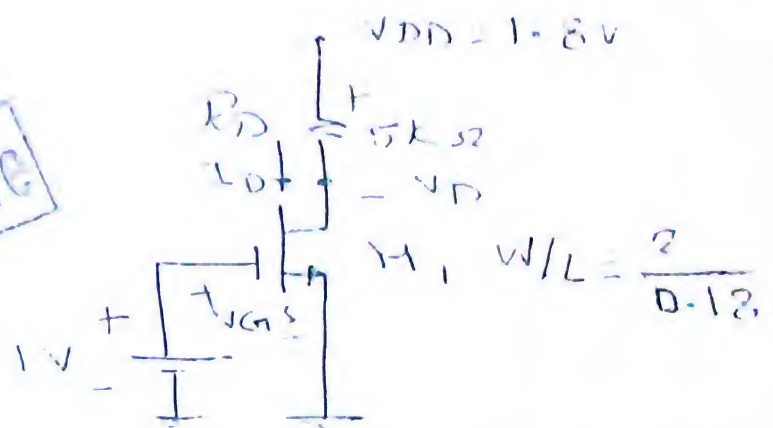 VDD = 1.8V
RD
5KΩ
ID
VD
+
-
M1 W/L = 2
0.18
+VGS
+
1V
-